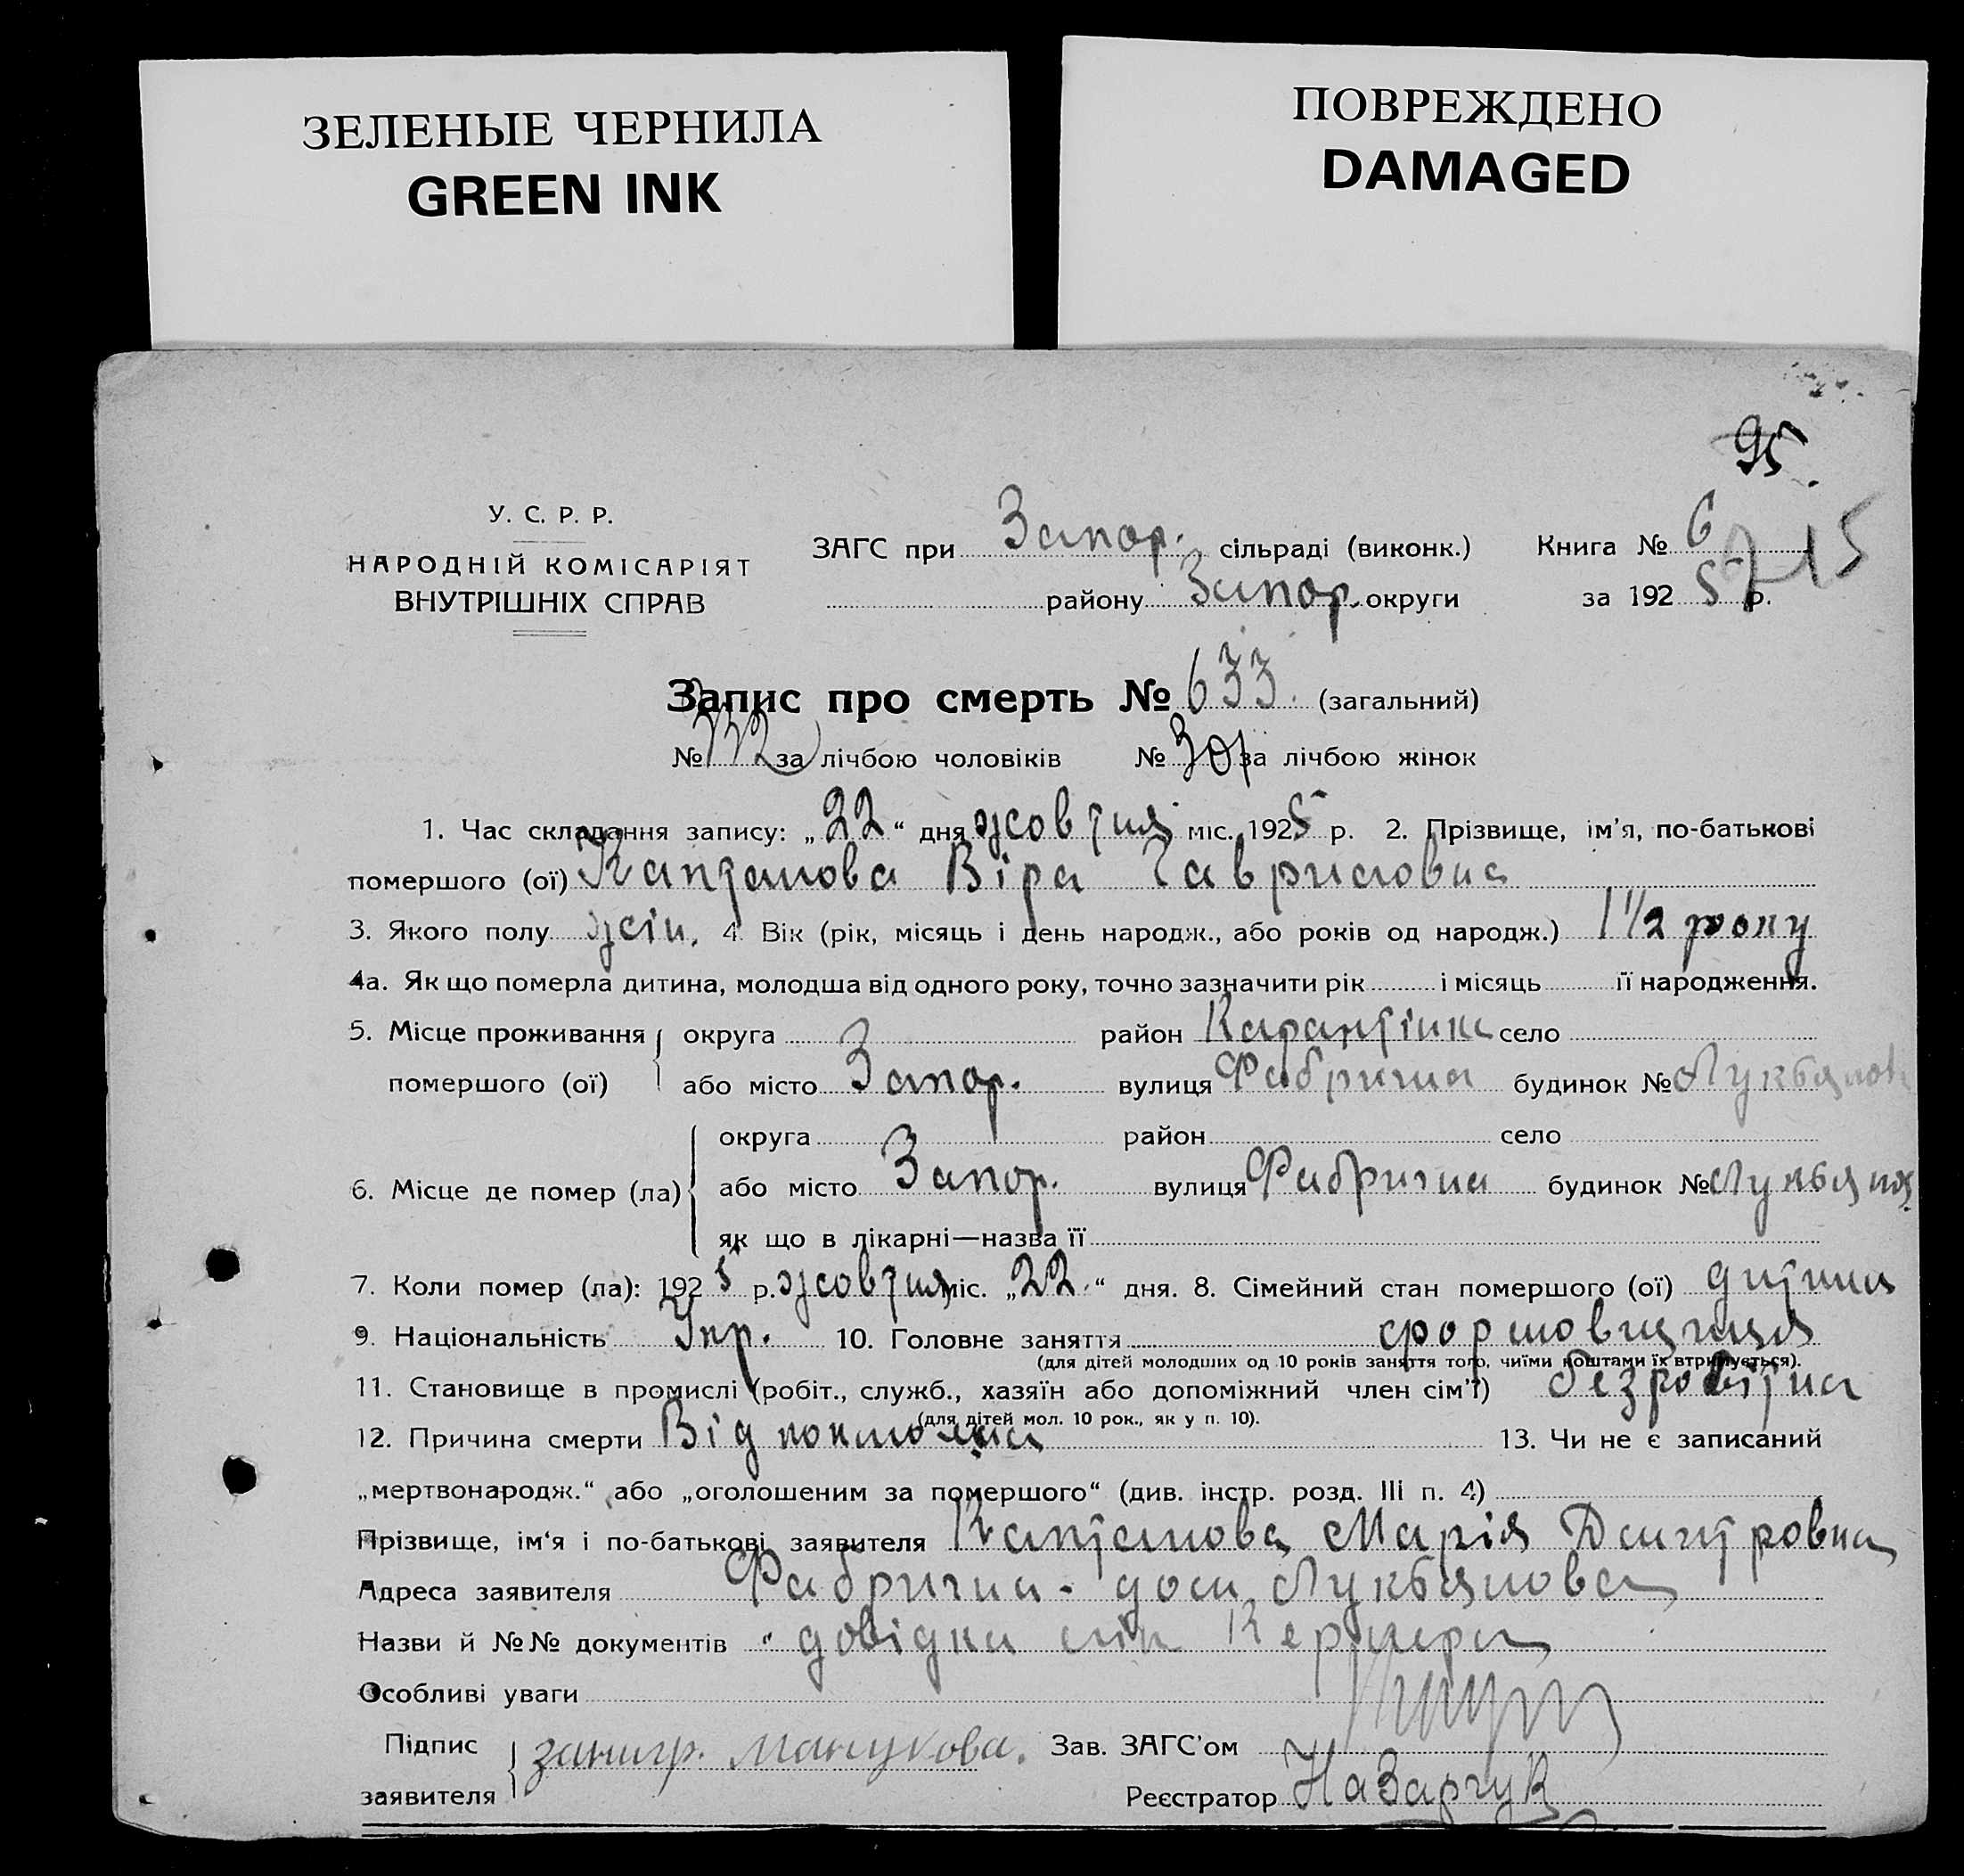 ЗЕЛЕНЫЕ ЧЕРНИЛА
GREEN INK
ПОВРЕЖДЕНО
DAMAGED
95.
У. С. Р. Р.
НАРОДНІЙ КОМІСАРІЯТ
ВНУТРІШНІХ СПРАВ
ЗАГС при Запор. сільраді (виконк.)
району Запор. округи
Книга № 6
за 1925 р.
715
Запис про смерть № 633. (загальний)
№ 332 за лічбою чоловіків № 301 за лічбою жінок
1. Час складання запису: „22“ дня жовтня міс. 1925 р. 2. Прізвище, ім'я, по-батькові
помершого (ої) Каптанова Віра Гавриловна
3. Якого полу жін. 4. Вік (рік, місяць і день народж., або років од народж.) 1 1/2 року
4а. Як що померла дитина, молодша від одного року, точно зазначити рік і місяць її народження.
5. Місце проживання округа район Карантінка село
помершого (ої) або місто Запор. вулиця Фабрична будинок № Лукьянов
округа район село
6. Місце де помер (ла) або місто Запор. вулиця Фабрична будинок №
як що в лікарні—назва її
7. Коли помер (ла): 1925 р. жовтня міс. „22.“ дня. 8. Сімейний стан помершого (ої) дитина
9. Національність Укр. 10. Головне заняття формовщиця
(для дітей молодших од 10 років заняття того, чиїми коштами їх втримується).
11. Становище в промислі (робіт., служб., хазяїн або допоміжний член сім'ї) безробітна
(для дітей мол. 10 рок., як у п. 10).
12. Причина смерти Від 13. Чи не є записаний
„мертвонародж.“ або „оголошеним за помершого“ (див. інстр. розд. III п. 4)
Прізвище, ім'я і по-батькові заявителя Каптанова Марія Дмитровна
Адреса заявителя Фабрична - дом Лукьянова
Назви й №№ документів довідка
Особливі уваги
Підпис
заявителя
Зав. ЗАГС'ом
Реєстратор Назарчук